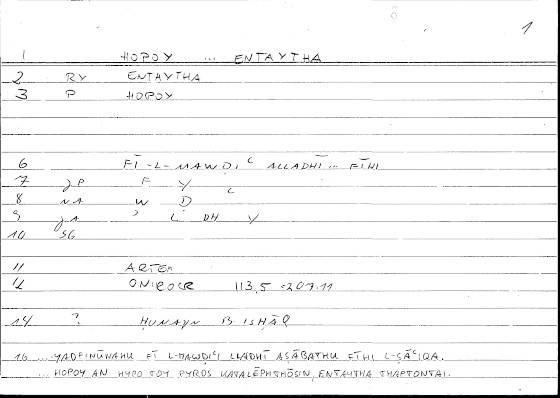 1
1 HOPOY ... ENTAYTHA
2 RY ENTAYTHA
3 P HOPOY
6 FĪ-L-MAWḌIʿ ALLADHĪ ... FĪHI
7 JP F Y
8 NA W Ḍ ʿ
9 JA ʾ L DH Y
10 SG
11 ARTEM
12 ONIROCR 113,5 = 207.11
14 ? ḤUNAYN B ISḤĀQ
16 ... YADFINŪNAHU FĪ L-MAWḌIʿI LLADHĪ AṢĀBATHU FĪHI L-ṢĀʿIQA.
... HOPOY AN HYPO TOY PYROS KATALĒPHTHŌSIN, ENTAYTHA THAPTONTAI.